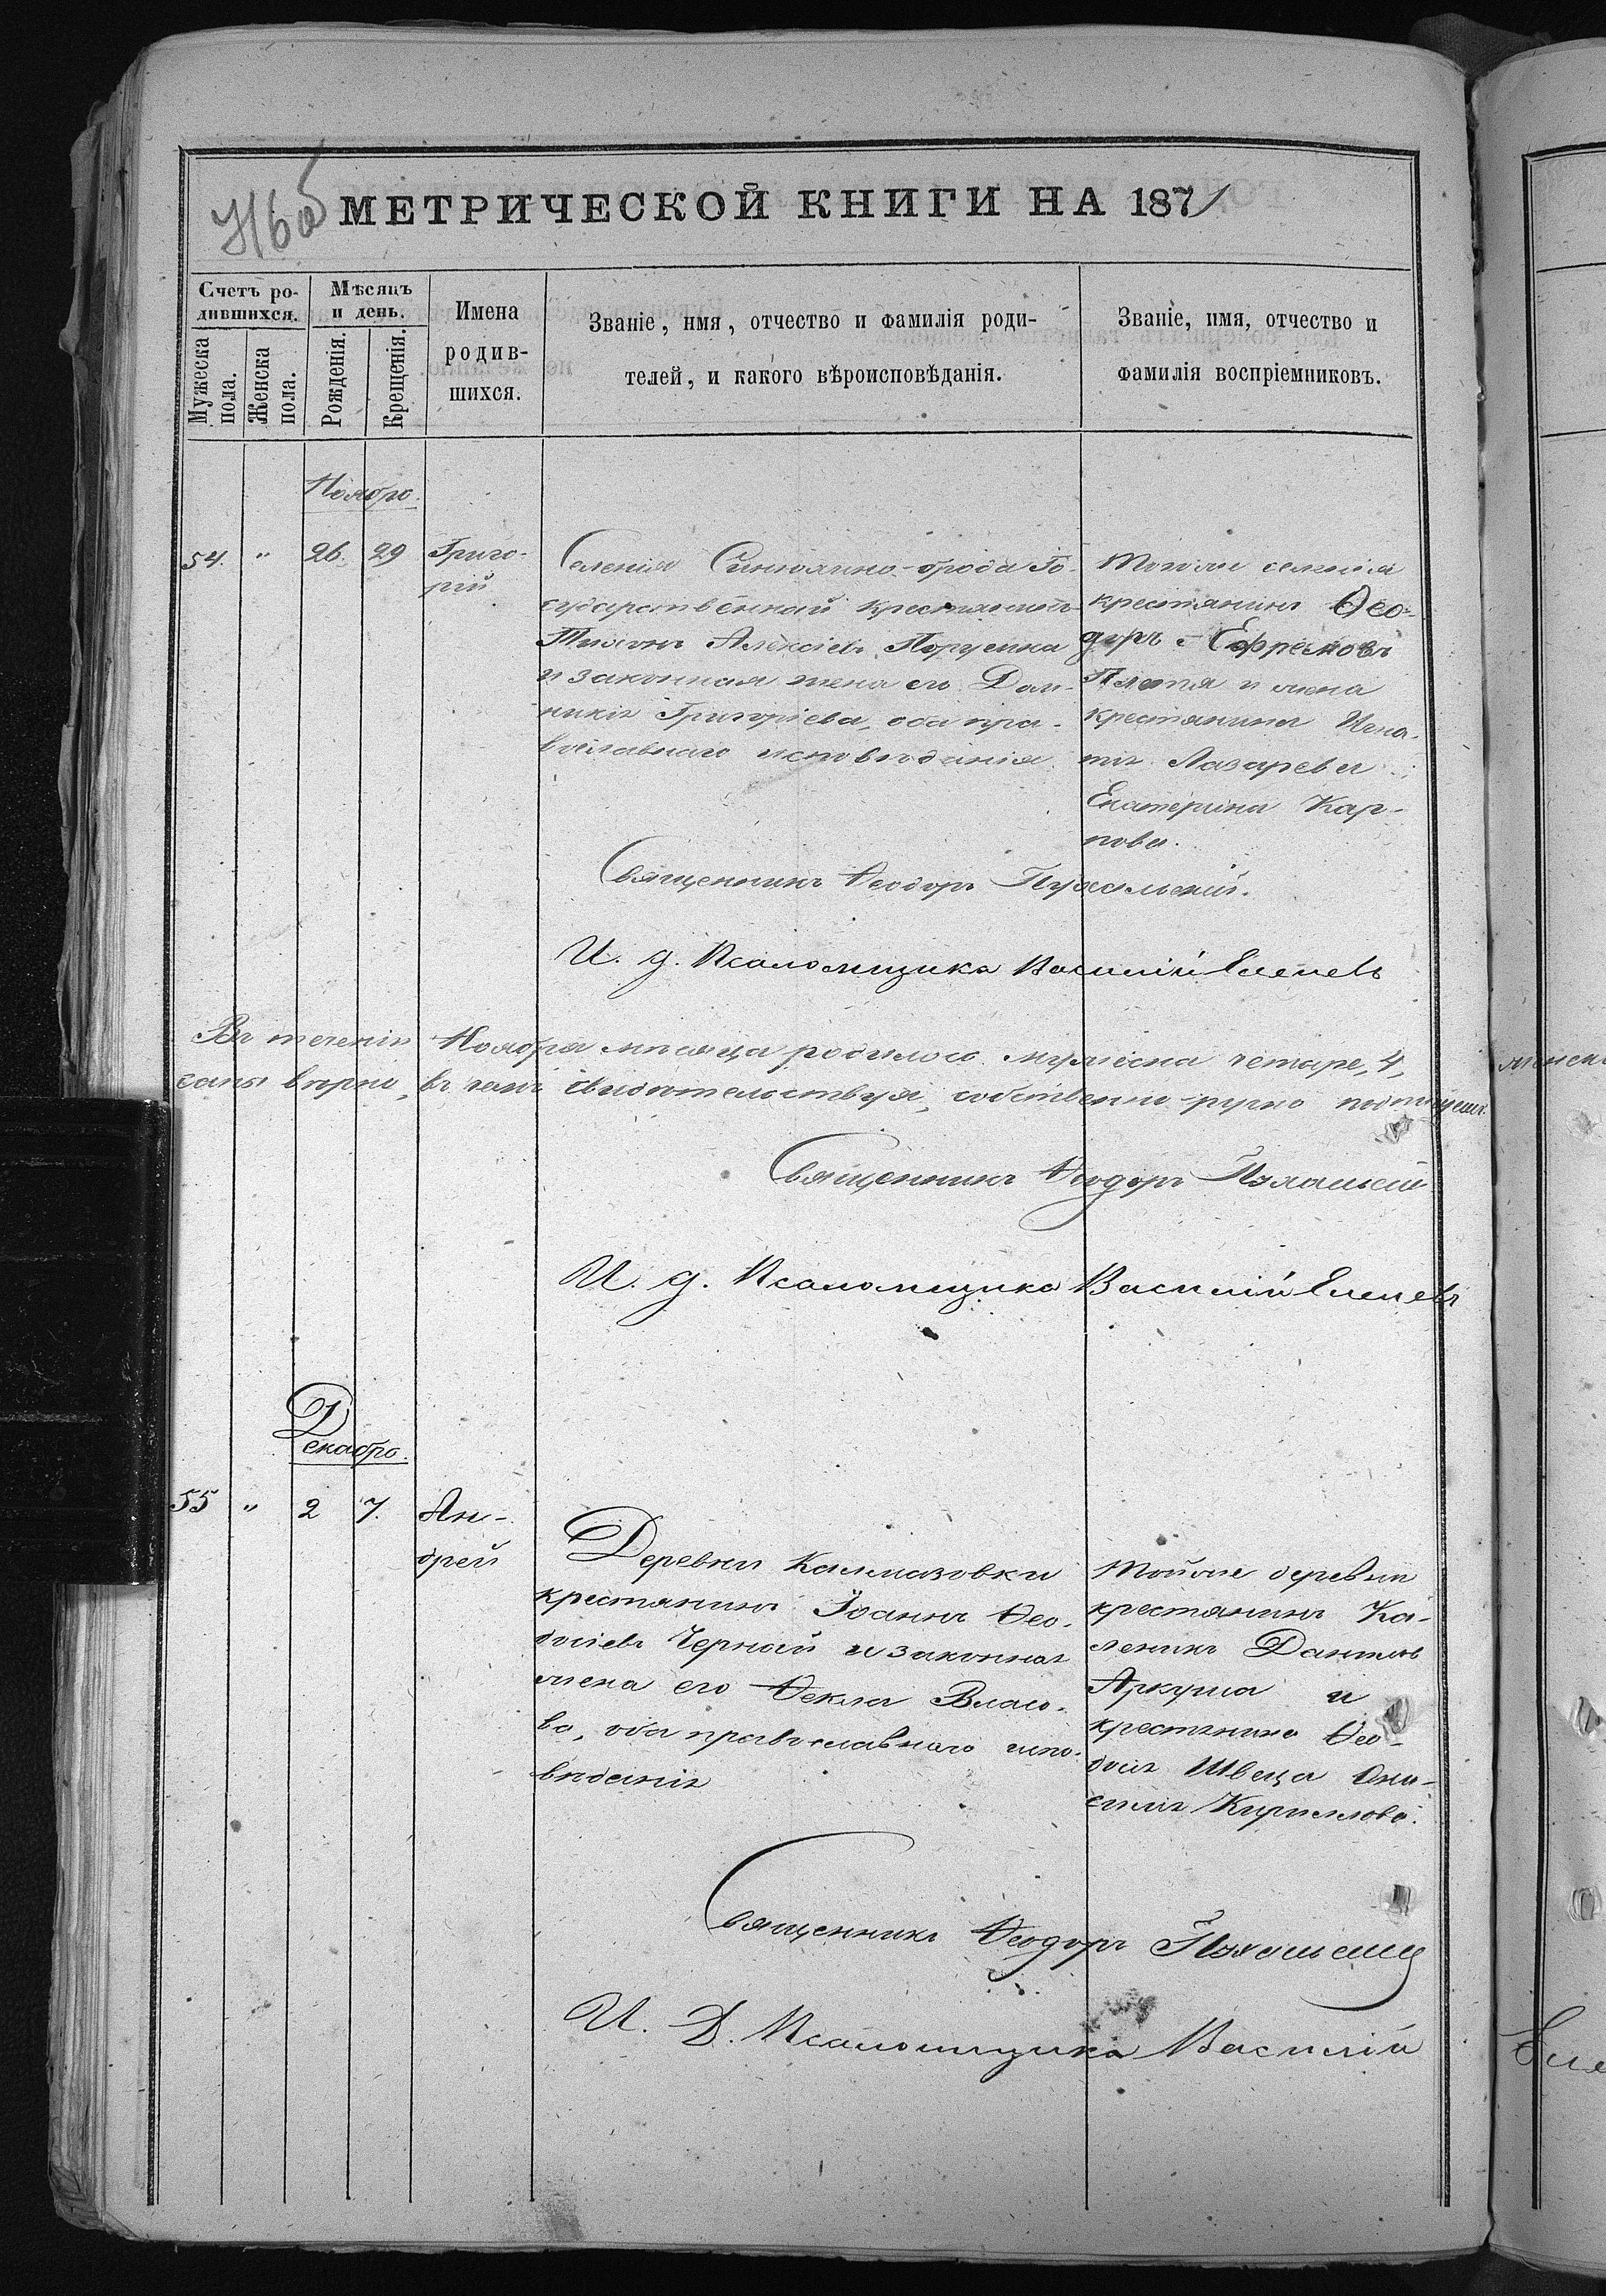 МЕТРИЧЕСКОЙ КНИГИ НА 1871
Счетъ ро-
дившихся.
Мѣсяцъ
и день.
Мужеска
пола.
Женска
пола.
Рожденія.
Крещенія.
Имена
родив-
шихся.
Званіе, имя, отчество и фамилія роди-
телей, и какого вѣроисповѣданія.
Званіе, имя, отчество и
фамилія воспріемниковъ.
Ноябрь.
54. " 26. 29
Григо-
рій
Селенія Синюхино-брода Го-
сударственный крестьянинъ
Тихонъ Алексіевъ
и законная жена его Дом-
никія Григоріева, оба пра-
вославнаго исповѣданія
Тогоже селенія
крестьянинъ Ѳео-
доръ Ефремовъ
и жена
крестьянина Игна-
тія Лазарева
Екатерина Кар-
пова.
Священникъ Ѳеодоръ
И. д. Псаломщика Василій
Въ теченіи Ноября мѣсяца родилось мужеска четыре, 4,
вѣрно, въ чемъ свидѣтельствуя, собственно-ручно
Священникъ Ѳеодоръ
И. д. Псаломщика Василій
Декабрь.
55 " 2 7.
Ан-
дрей
Деревни Калмазовки
крестьянинъ Іоаннъ Ѳео-
досіевъ Черный и законная
жена его Ѳекла Власо-
ва, оба православнаго испо-
вѣданія
Тойже деревни
крестьянинъ Ка-
леникъ Даниловъ
Аркуша и
крестьянина Ѳео-
досія Швеца Они-
сія Кириллова.
Священникъ Ѳеодоръ
И. Д. Псаломщика Василій